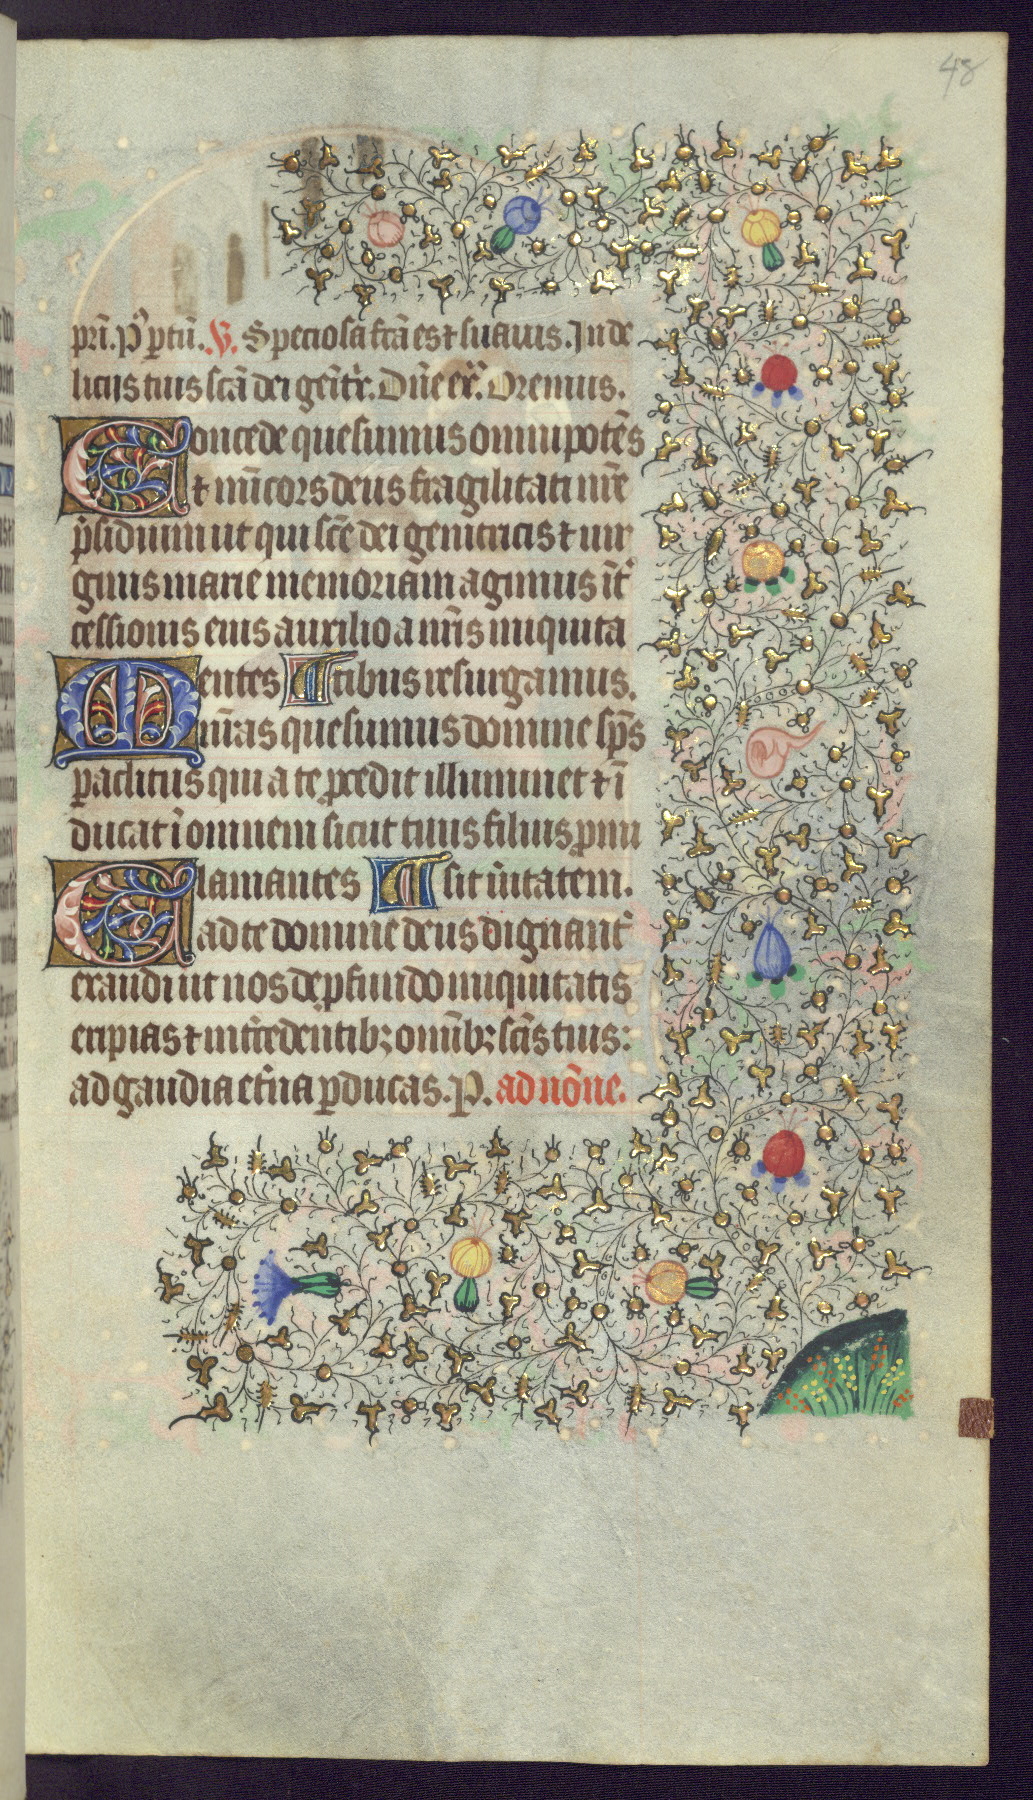 48
pri̅. Pꝰ ptu̅. ℣. Speciosa fc̅a es ⁊ suauis. In de
licijs tuis sc̅a dei geni̅t̾x. Dn̅e ex̾. Oremus.
Concede quesumus omnipote̅s
⁊ mi̅cors deus fragilitati nr̅e
p̾sidium ut qui sc̅e dei genitricis ⁊ uir
ginis marie memoriam agimus i̅t̾
cessionis eius auxilio a nr̅is iniquita
Mentes Tibus resurgamus.
nr̅as quesumus domine sp̅s
paclitus qui a te p̱cedit illuminet ⁊ i̅
ducat i̅ omnem sicut tuus filius p̱mi
Clamantes Tsit u̅itatem.
ad te domine deus dignant̾
exaudi ut nos de p̱fundo iniquitatis
eripias ⁊ int̾cedentibꝫ om̅ibꝫ sc̅is tuis:
ad gaudia et̾na p̱ducas. P. ad no̅ne.